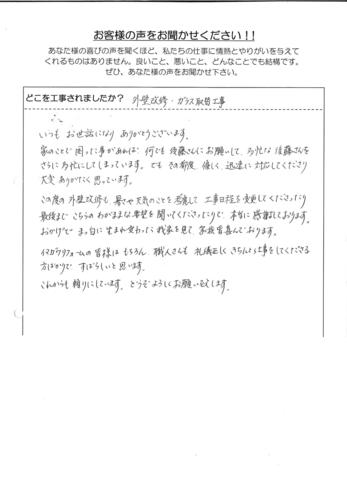 お客様の声をお聞かせください!!
あなた様の喜びの声を聞くほど、私たちの仕事に情熱とやりがいを与えて
くれるものはありません。良いこと、悪いこと、どんなことでも結構です。
ぜひ、あなた様の声をお聞かせ下さい。
どこを工事されましたか? 外壁改修・ガラス取替工事
いつも お世話になり ありがとうございます。
家のことで 困った事があれば 何でも 後藤さんに お願いして、お忙な 後藤さんを
さらに お忙にしてしまっています。でも その都度 優しく、迅速に 対応してくださり
大変 ありがたく 思っています。
この度の 外壁改修も 暑さや 天気のことを 考慮して 工事日程を 変更してくださったり
最後まで こちらの わがままな 希望を 聞いてくださったりで 本当に 感謝しております。
おかげで まっ白に 生まれ変わった 我家を 見て、家族皆 喜んでおります。
イマガワリフォームの 皆様は もちろん、職人さんも 礼儀正しく きちんと仕事をしてくださる
方ばかりで すばらしいと 思います。
これからも 頼りにしています。どうぞ よろしく お願い致します。